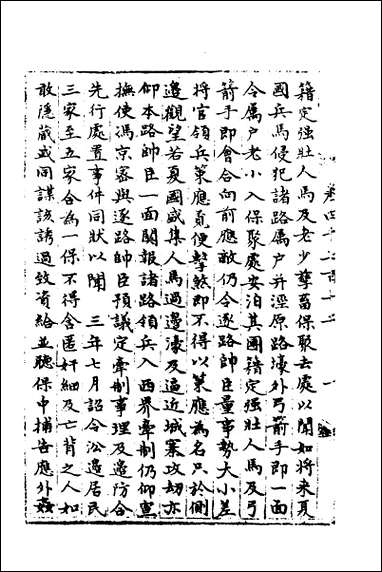 籍定強壯人馬及老少孳畜保聚去處以聞如將來夏
國兵馬侵犯諸路屬戶并涇原路濠外弓箭手即一面
令屬戶老小入保聚處安泊其團籍定強壯人馬及弓
箭手即會合向前應敵仍令逐路帥臣量事勢大小差
將官領兵策應覓便擊煞即不得以策應為名只於側
邊觀望若夏國盛集人馬過邊濠及逼近城寨攻刼亦
仰本路帥臣一面關報諸路領兵入西界牽制仍仰宣
撫使馮京審與逐路帥臣預議定牽制事理及邊防合
先行處置事件同狀以聞　三年七月詔令㳂邊居民
三家至五家合為一保不得舍匿奸細及亡背之人如
敢隱藏或同謀該誘過致資給並聽保中捕告應外姦